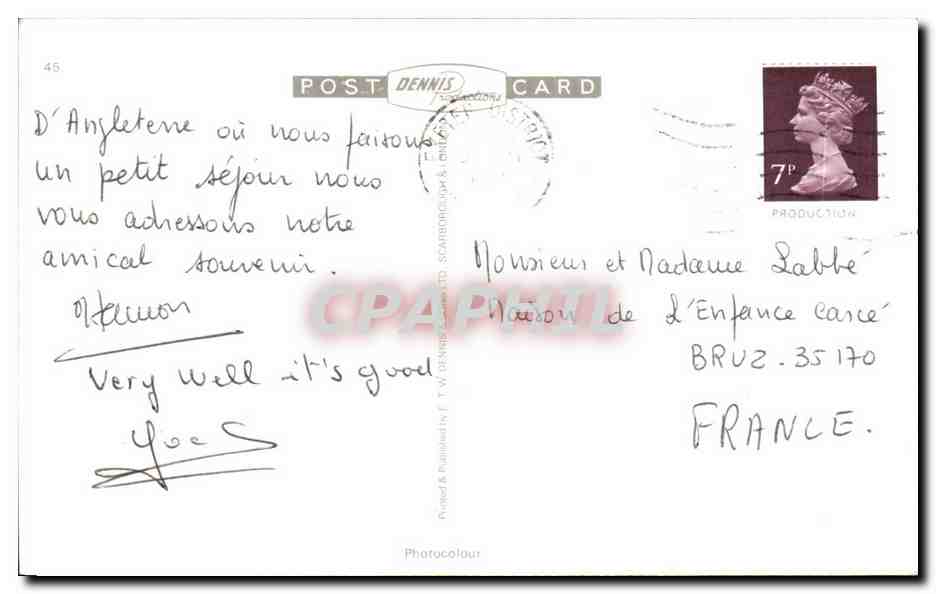 45
POST DENNIS Productions CARD
D'Angleterre où nous faisons
un petit séjour nous
vous adressons notre
amical souvenir.
Very well it's good
7P
PRODUCTION
Monsieur et Madame Labbé
Maison de L'Enfance carcé
BRUZ - 35170
FRANCE.
CPAPHIL
Printed & Published by E. T. W. DENNIS & SONS LTD. SCARBOROUGH & LONDON
Photocolour